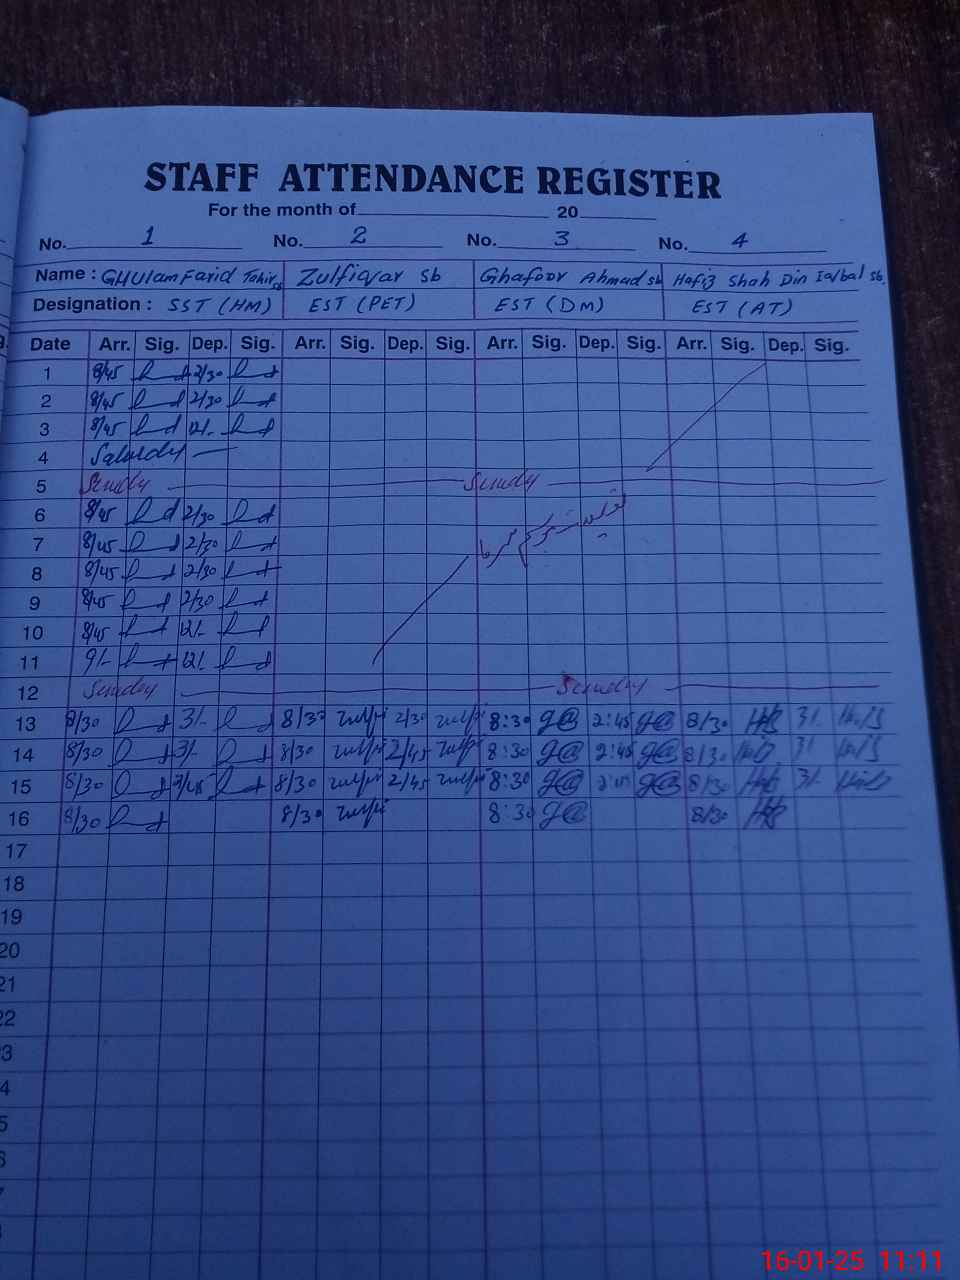 STAFF ATTENDANCE REGISTER
For the month of 20
No. 1 No. 2 No. 3 No. 4
Name : GHULam Farid Tahir sb Zulfiqar sb Ghafoor Ahmad sb Hafiz Shah Din Iqbal sb.
Designation : SST (HM) EST (PET) EST (DM) EST (AT)
Date Arr. Sig. Dep. Sig. Arr. Sig. Dep. Sig. Arr. Sig. Dep. Sig. Arr. Sig. Dep. Sig.
1 8/45 2/30
2 8/45 2/30
3 8/45 12/-
4 Saturday
5 Sunday Sunday
6 8/45 2/30
7 8/45 2/30
8 8/45 2/30
9 8/45 2/30
10 8/45 12/-
11 9/- 12/-
12 Sunday Sunday
13 8/30 3/- 8/30 zulfi 2/30 zulfi 8:30 g@ 2:45 g@ 8/30 3/-
14 8/30 3/- 8/30 zulfi 2/45 zulfi 8:30 g@ 2:45 g@ 8/30 3/-
15 8/30 2/45 8/30 zulfi 2/45 zulfi 8:30 g@ 2:45 g@ 8/30 3/-
16 8/30 8/30 zulfi 8:30 g@ 8/30
17
18
19
20
21
22
3
4
5
6
7
16-01-25 11:11